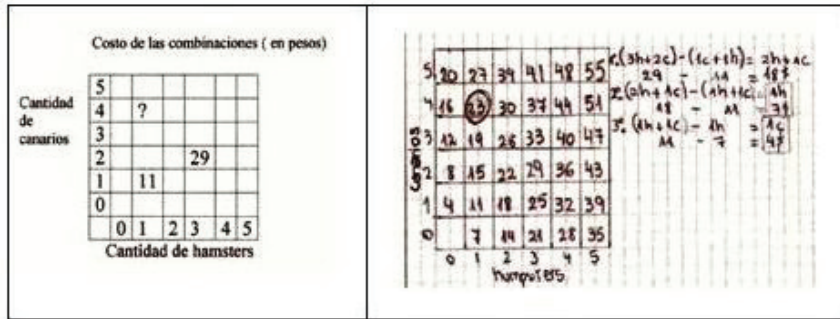 Costo de las combinaciones ( en pesos)
Cantidad
de
canarios
5
4 ?
3
2 29
1 11
0
0 1 2 3 4 5
Cantidad de hamsters
canarios
5 20 27 34 41 48 55
4 16 23 30 37 44 51
3 12 19 26 33 40 47
2 8 15 22 29 36 43
1 4 11 18 25 32 39
0 7 14 21 28 35
0 1 2 3 4 5
(3h+2c)-(1c+1h)= 2h+1c
29 - 11 = 18$
2º (2h+1c)-(1h+1c)= 1h
18 - 11 = 7$
3º (1h+1c) - 1h = 1c
11 - 7 = 4$